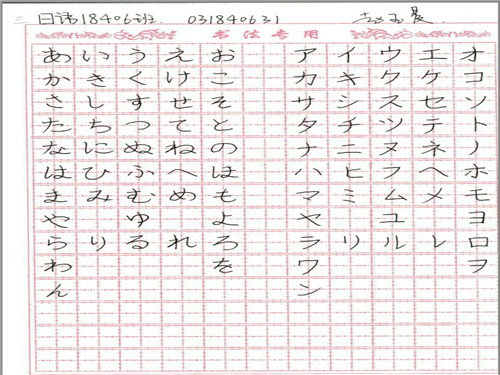 日语18406班 031840631
书法专用
あ い う え お ア イ ウ エ オ
か き く け こ カ キ ク ケ コ
さ し す せ そ サ シ ス セ ソ
た ち つ て と タ チ ツ テ ト
な に ぬ ね の ナ ニ ヌ ネ ノ
は ひ ふ へ ほ ハ ヒ フ ヘ ホ
ま み む め も マ ミ ム メ モ
や ゆ よ ヤ ユ ヨ
ら り る れ ろ ラ リ ル レ ロ
わ を ワ ヲ
ん ン